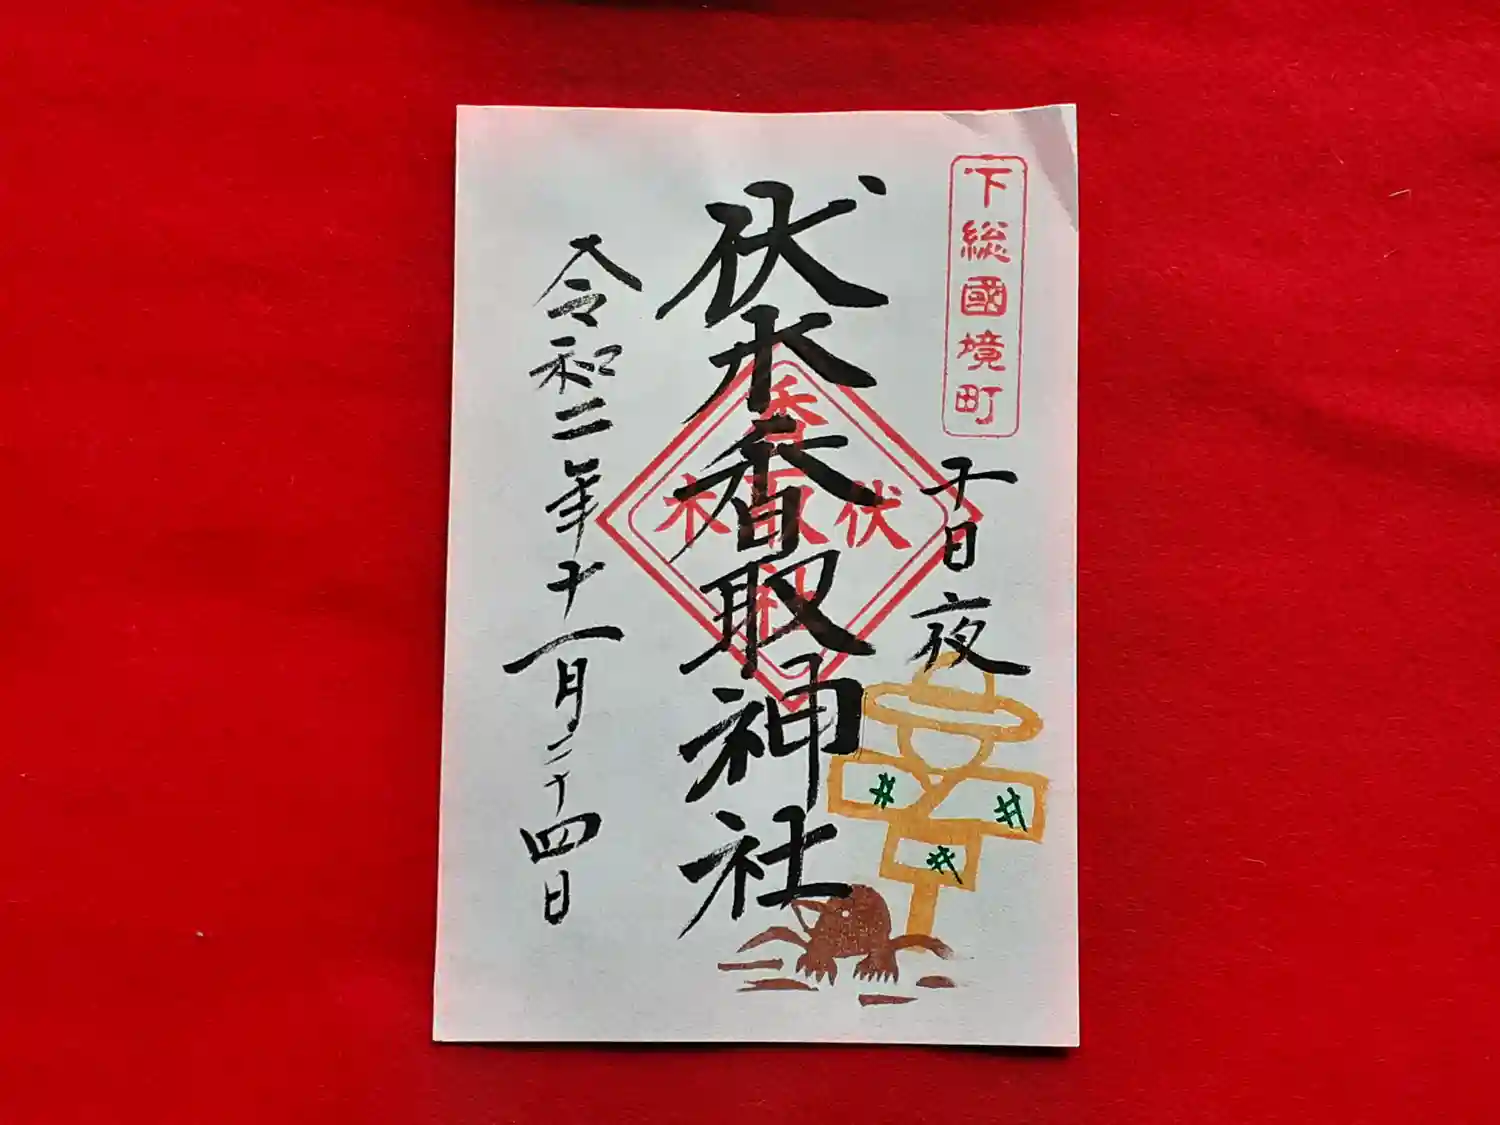 下総國境町
十日夜
伏木香取神社
伏木
香取社
令和二年十一月二十四日